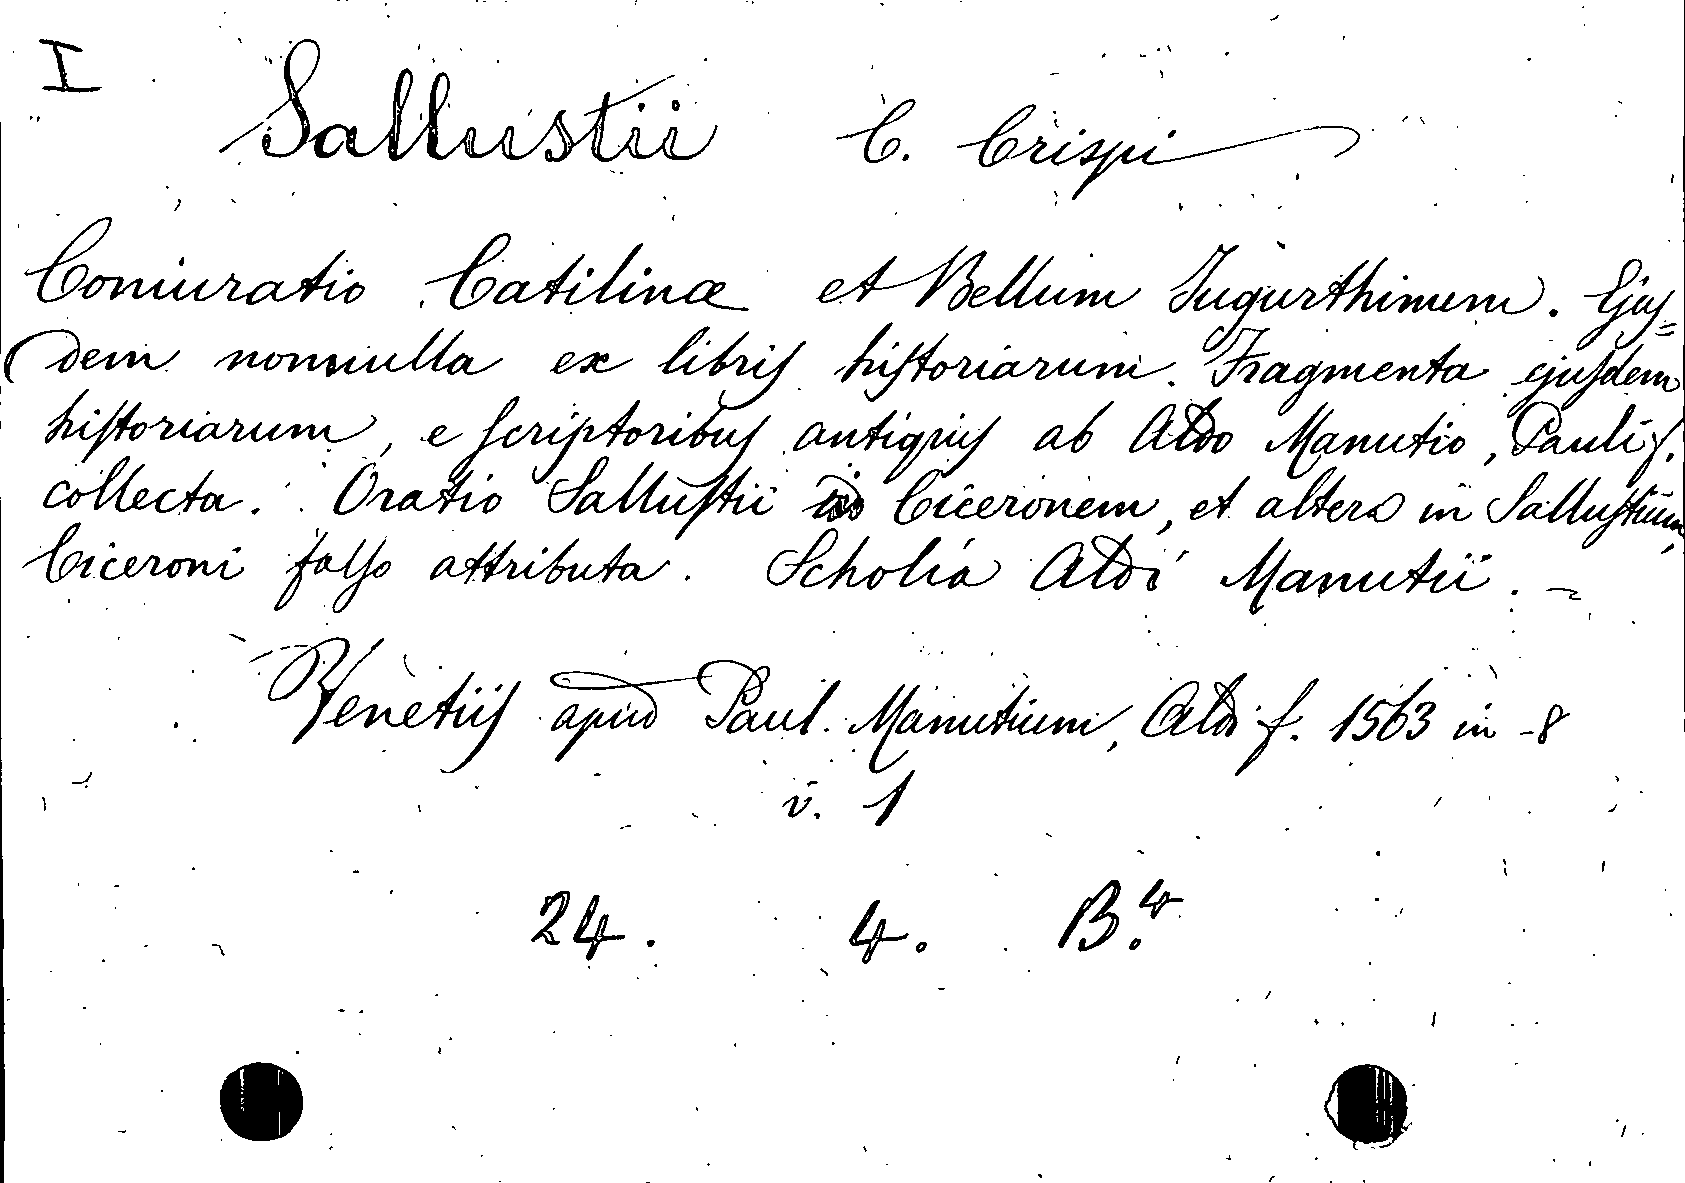 I
Sallustii C. Crispi
Coniuratio Catilinæ et Bellum Jugurthinum. Ejus=
dem nonnulla ex libris historiarum. Fragmenta ejusdem
historiarum, e scriptoribus antiquis ab Aldo Manutio, Pauli f.
collecta. Oratio Sallustii in Ciceronem, et altera in Sallustium,
Ciceroni falso attributa. Scholia Aldi Manutii. -
Venetiis apud Paul. Manutium, Aldi f. 1563 in -8
v. 1
24. 4. B.⁴